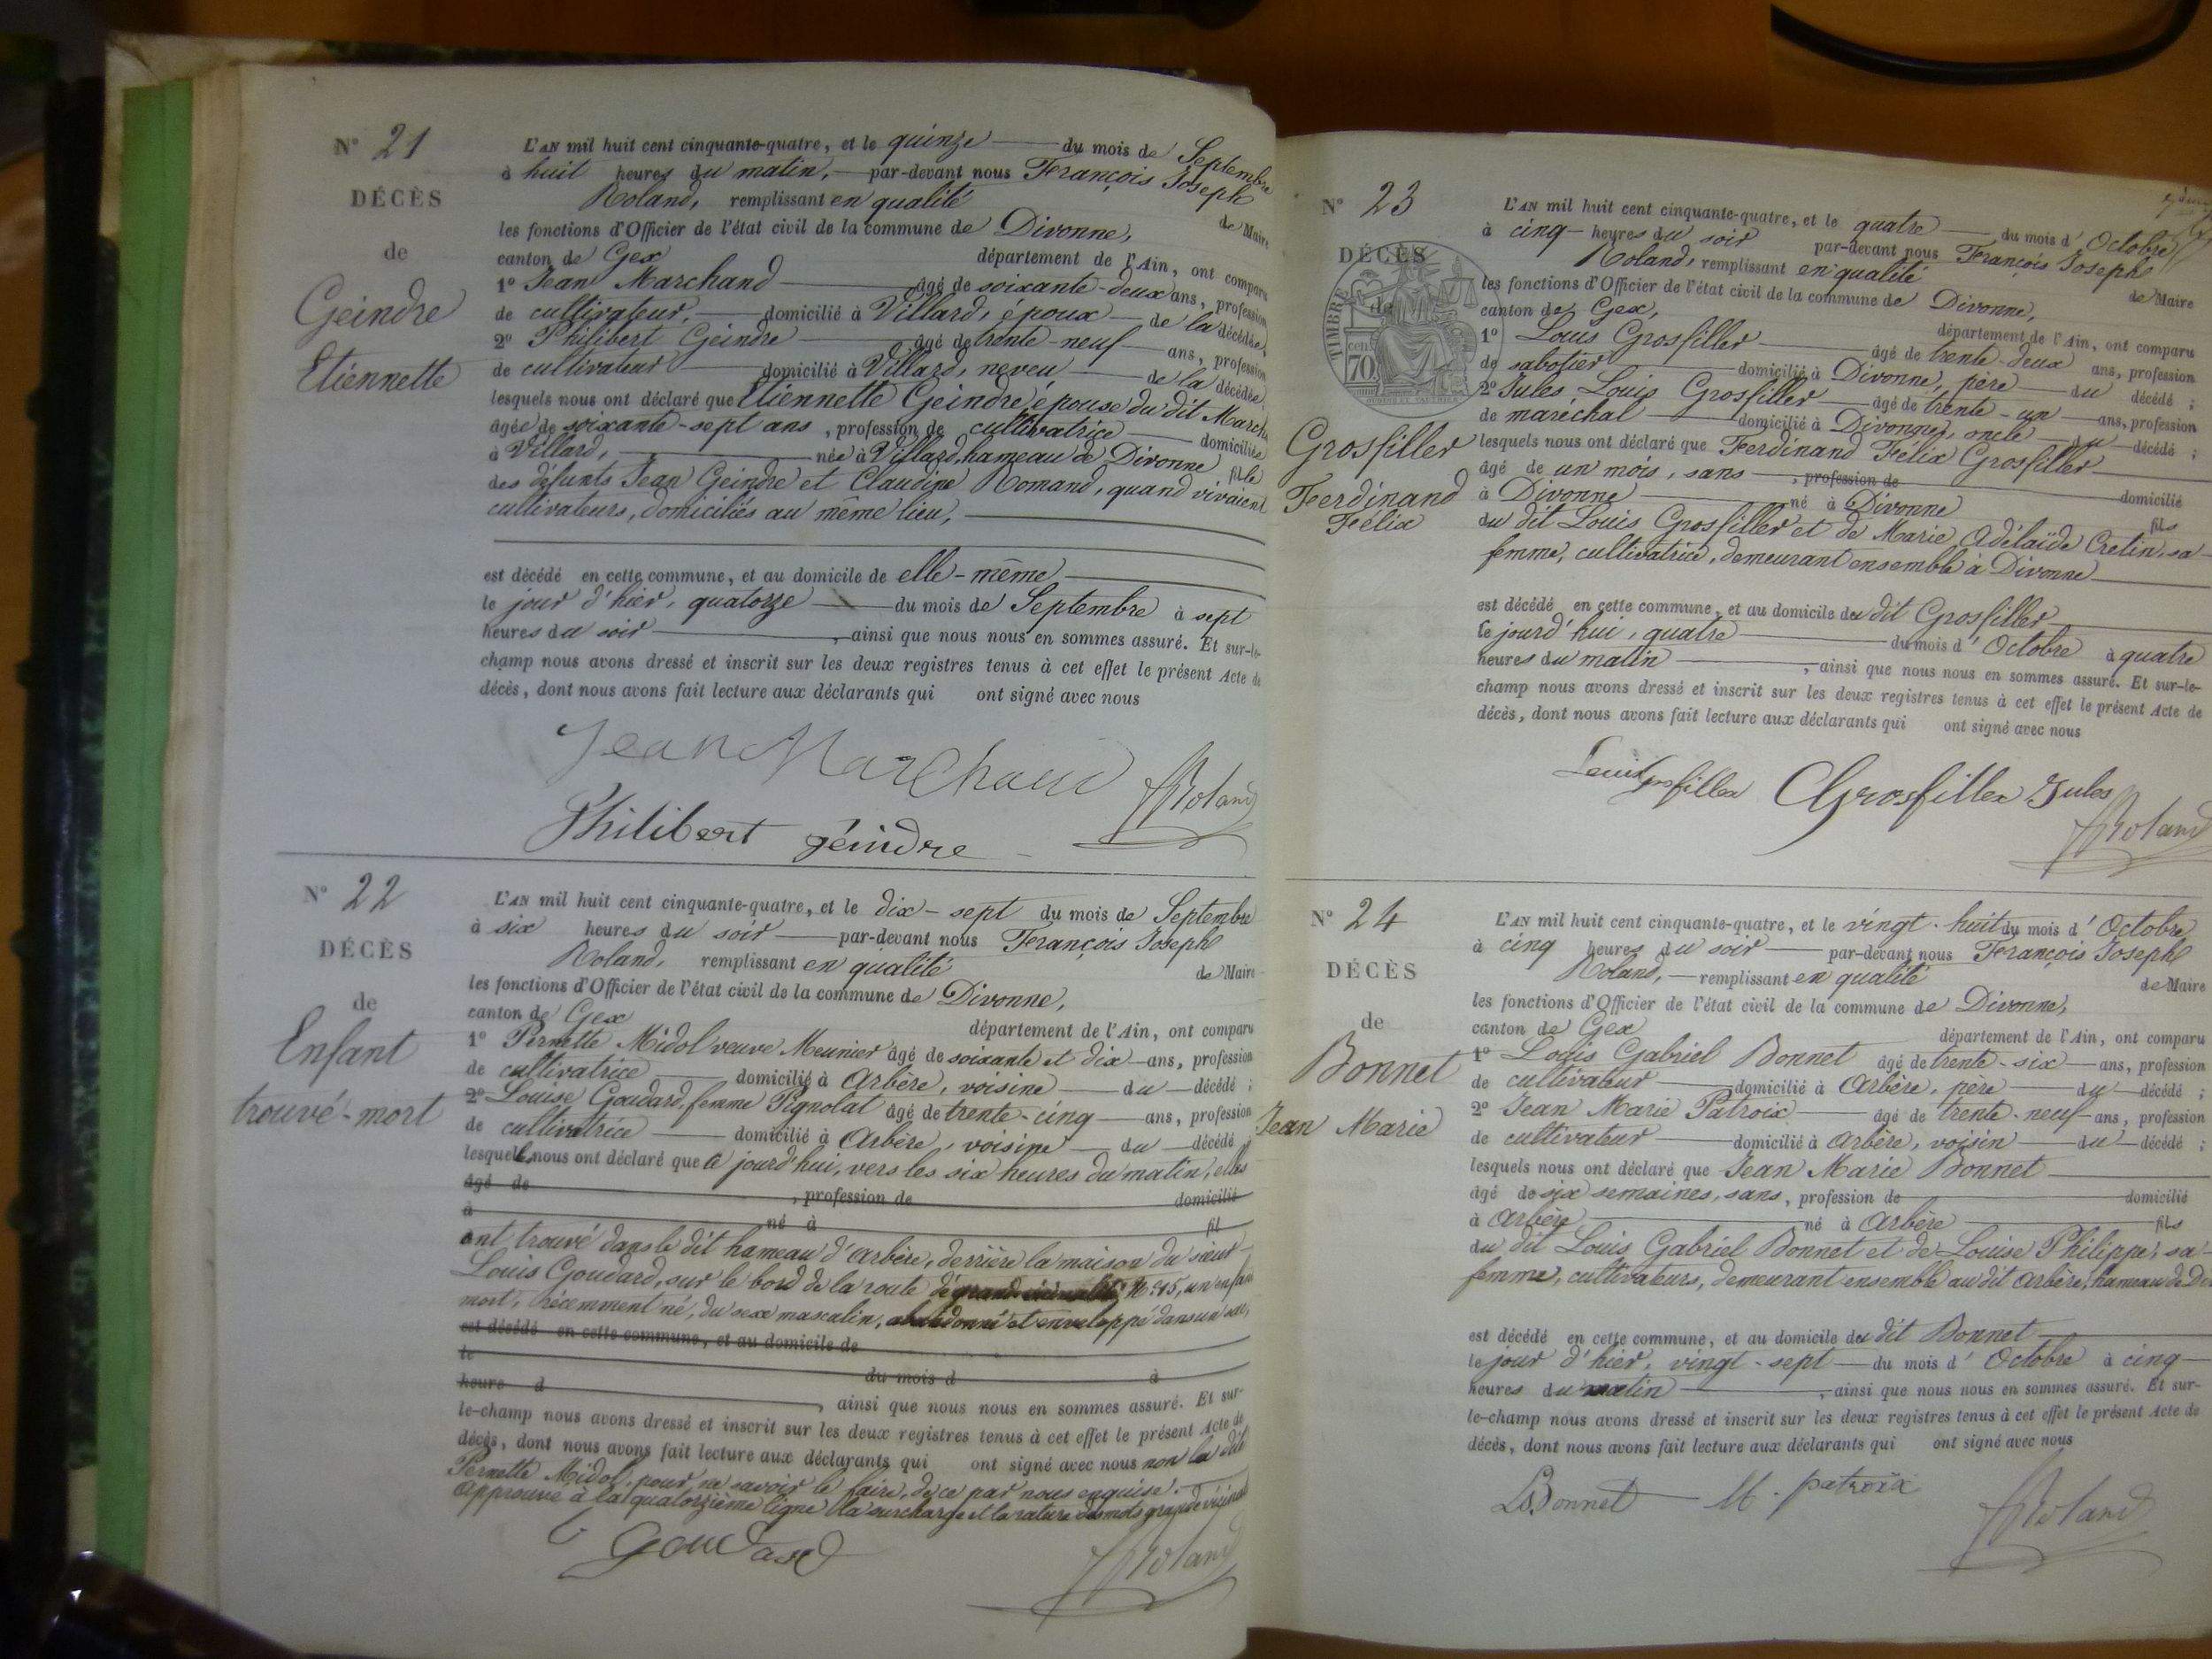 N° 21
DÉCÈS
de
Geindre
Etiennette
L'AN mil huit cent cinquante-quatre, et le quinze du mois de Septembre
à huit heures du matin, par-devant nous François Joseph
Roland, remplissant en qualité de Maire
les fonctions d'Officier de l'état civil de la commune de Divonne,
canton de Gex département de l'Ain, ont comparu
1° Jean Marchand âgé de soixante-deux ans, profession
de cultivateur, domicilié à Villard, époux de la décédée,
2° Philibert Geindre âgé de trente-neuf ans, profession
de cultivateur domicilié à Villard, neveu de la décédée
lesquels nous ont déclaré que Etiennette Geindre épouse du dit March
âgée de soixante-sept ans, profession de cultivatrice domiciliée
à Villard, née à Villard, hameau de Divonne fille
des défunts Jean Geindre et Claudine Romand, quand vivaient
cultivateurs, domiciliés au même lieu,
est décédé en cette commune, et au domicile de elle-même
le jour d'hier, quatorze du mois de Septembre à sept
heures du soir, ainsi que nous nous en sommes assuré. Et sur-le-
champ nous avons dressé et inscrit sur les deux registres tenus à cet effet le présent Acte de
décès, dont nous avons fait lecture aux déclarants qui ont signé avec nous
Jean Marchand
Philibert géindre
Roland
N° 22
DÉCÈS
de
Enfant
trouvé-mort
L'AN mil huit cent cinquante-quatre, et le dix-sept du mois de Septembre
à six heures du soir par-devant nous François Joseph
Roland, remplissant en qualité de Maire
les fonctions d'Officier de l'état civil de la commune de Divonne,
canton de Gex département de l'Ain, ont comparu
1° Pernette Midol veuve Meunier âgé de soixante et dix ans, profession
de cultivatrice domicilié à Arbère, voisine du décédé ;
2° Louise Goudard, femme Pignolat âgé de trente-cinq ans, profession
de cultivatrice domicilié à Arbère, voisine du décédé
lesquelles nous ont déclaré que ce jourd'hui, vers les six heures du matin, elles
âgé de , profession de domicilié
à né à fil
ont trouvé dans le dit hameau d'Arbère, derrière la maison du sieur
Louis Goudard, sur le bord de la route de N° 15, un enfant
mort, récemment né, du sexe masculin, abandonné et enveloppé dans un sac,
est décédé en cette commune, et au domicile de
le du mois d à
heure d , ainsi que nous nous en sommes assuré. Et sur-
le-champ nous avons dressé et inscrit sur les deux registres tenus à cet effet le présent Acte de
décès, dont nous avons fait lecture aux déclarants qui ont signé avec nous non la dite
Pernette Midol, pour ne savoir le faire, de ce par nous enquise.
Approuvé à la quatorzième ligne la surcharge et la rature des mots grande vicinal
L Goudard
Roland
N° 23
DÉCÈS
de
TIMBRE
70
cen
Grosfiller
Ferdinand
Félix
L'AN mil huit cent cinquante-quatre, et le quatre du mois d'Octobre
à cinq heures du soir par-devant nous François Joseph
Roland, remplissant en qualité de Maire
les fonctions d'Officier de l'état civil de la commune de Divonne,
canton de Gex, département de l'Ain, ont comparu
1° Louis Grosfiller âgé de trente-deux ans, profession
de sabotier domicilié à Divonne, père du décédé ;
2° Jules Louis Grosfiller âgé de trente-un ans, profession
de maréchal domicilié à Divonne, oncle du décédé ;
lesquels nous ont déclaré que Ferdinand Félix Grosfiller
âgé de un mois, sans, profession de domicilié
à Divonne né à Divonne fils
du dit Louis Grosfiller et de Marie Adélaïde Cretin, sa
femme, cultivatrice, demeurant ensemble à Divonne
est décédé en cette commune, et au domicile du dit Grosfiller
le jourd'hui, quatre du mois d'Octobre à quatre
heures du matin, ainsi que nous nous en sommes assuré. Et sur-le-
champ nous avons dressé et inscrit sur les deux registres tenus à cet effet le présent Acte de
décès, dont nous avons fait lecture aux déclarants qui ont signé avec nous
Louis grosfiller Grosfiller Jules
Roland
N° 24
DÉCÈS
de
Bonnet
Jean Marie
L'AN mil huit cent cinquante-quatre, et le vingt-huit du mois d'Octobre
à cinq heures du soir par-devant nous François Joseph
Roland, remplissant en qualité de Maire
les fonctions d'Officier de l'état civil de la commune de Divonne,
canton de Gex département de l'Ain, ont comparu
1° Louis Gabriel Bonnet âgé de trente-six ans, profession
de cultivateur domicilié à Arbère, père du décédé ;
2° Jean Marie Patroix âgé de trente-neuf ans, profession
de cultivateur domicilié à Arbère, voisin du décédé ;
lesquels nous ont déclaré que Jean Marie Bonnet
âgé de six semaines, sans, profession de domicilié
à Arbère né à Arbère fils
du dit Louis Gabriel Bonnet et de Louise Philippe, sa
femme, cultivateurs, demeurant ensemble au dit Arbère, hameau de Div
est décédé en cette commune, et au domicile du dit Bonnet
le jour d'hier, vingt-sept du mois d'Octobre à cinq
heures du matin, ainsi que nous nous en sommes assuré. Et sur-
le-champ nous avons dressé et inscrit sur les deux registres tenus à cet effet le présent Acte de
décès, dont nous avons fait lecture aux déclarants qui ont signé avec nous
LBonnet M. patroix
Roland